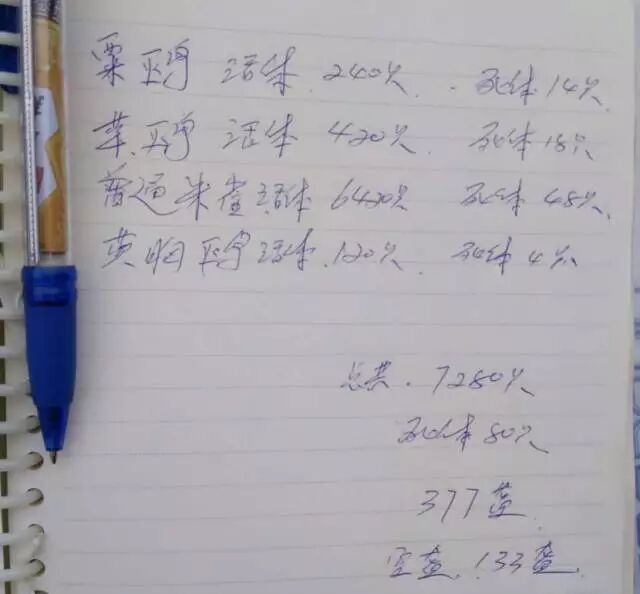 栗鹀 活体 240只. 死体14只
苇鹀 活体 420只 死体18只
普通朱雀活体 6420只 死体48只
黄胸鹀活体 120只. 死体4只
总共. 7280只
死体80只
377
空 133